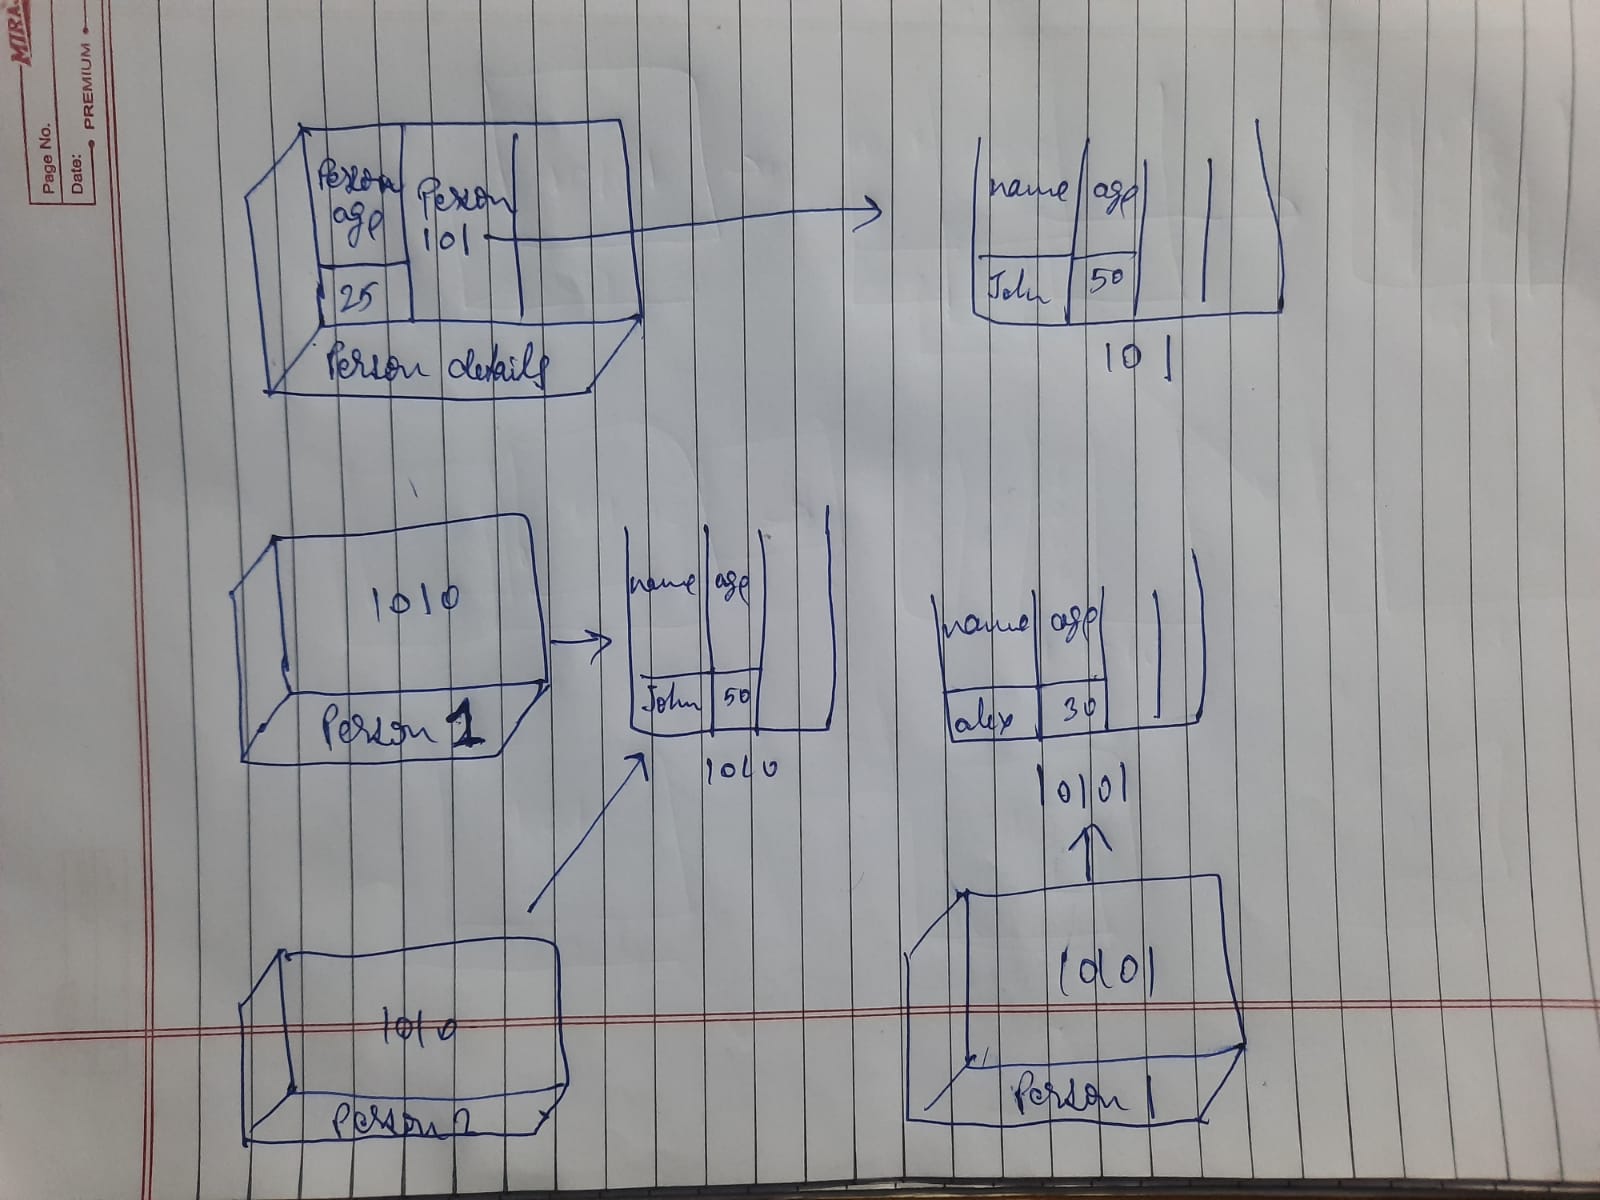 MIRA
Page No.
Date:
PREMIUM
Person
age
25
Person
101
Person details
name age
John 50
101
1010
Person 1
name age
John 50
1010
name age
alex 30
10101
1010
Person 2
10101
Person 1